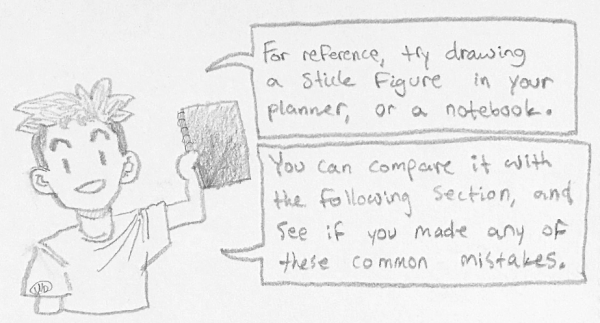 For reference, try drawing
a Stick Figure in your
planner, or a notebook.
You can compare it with
the following section, and
see if you made any of
these common mistakes.